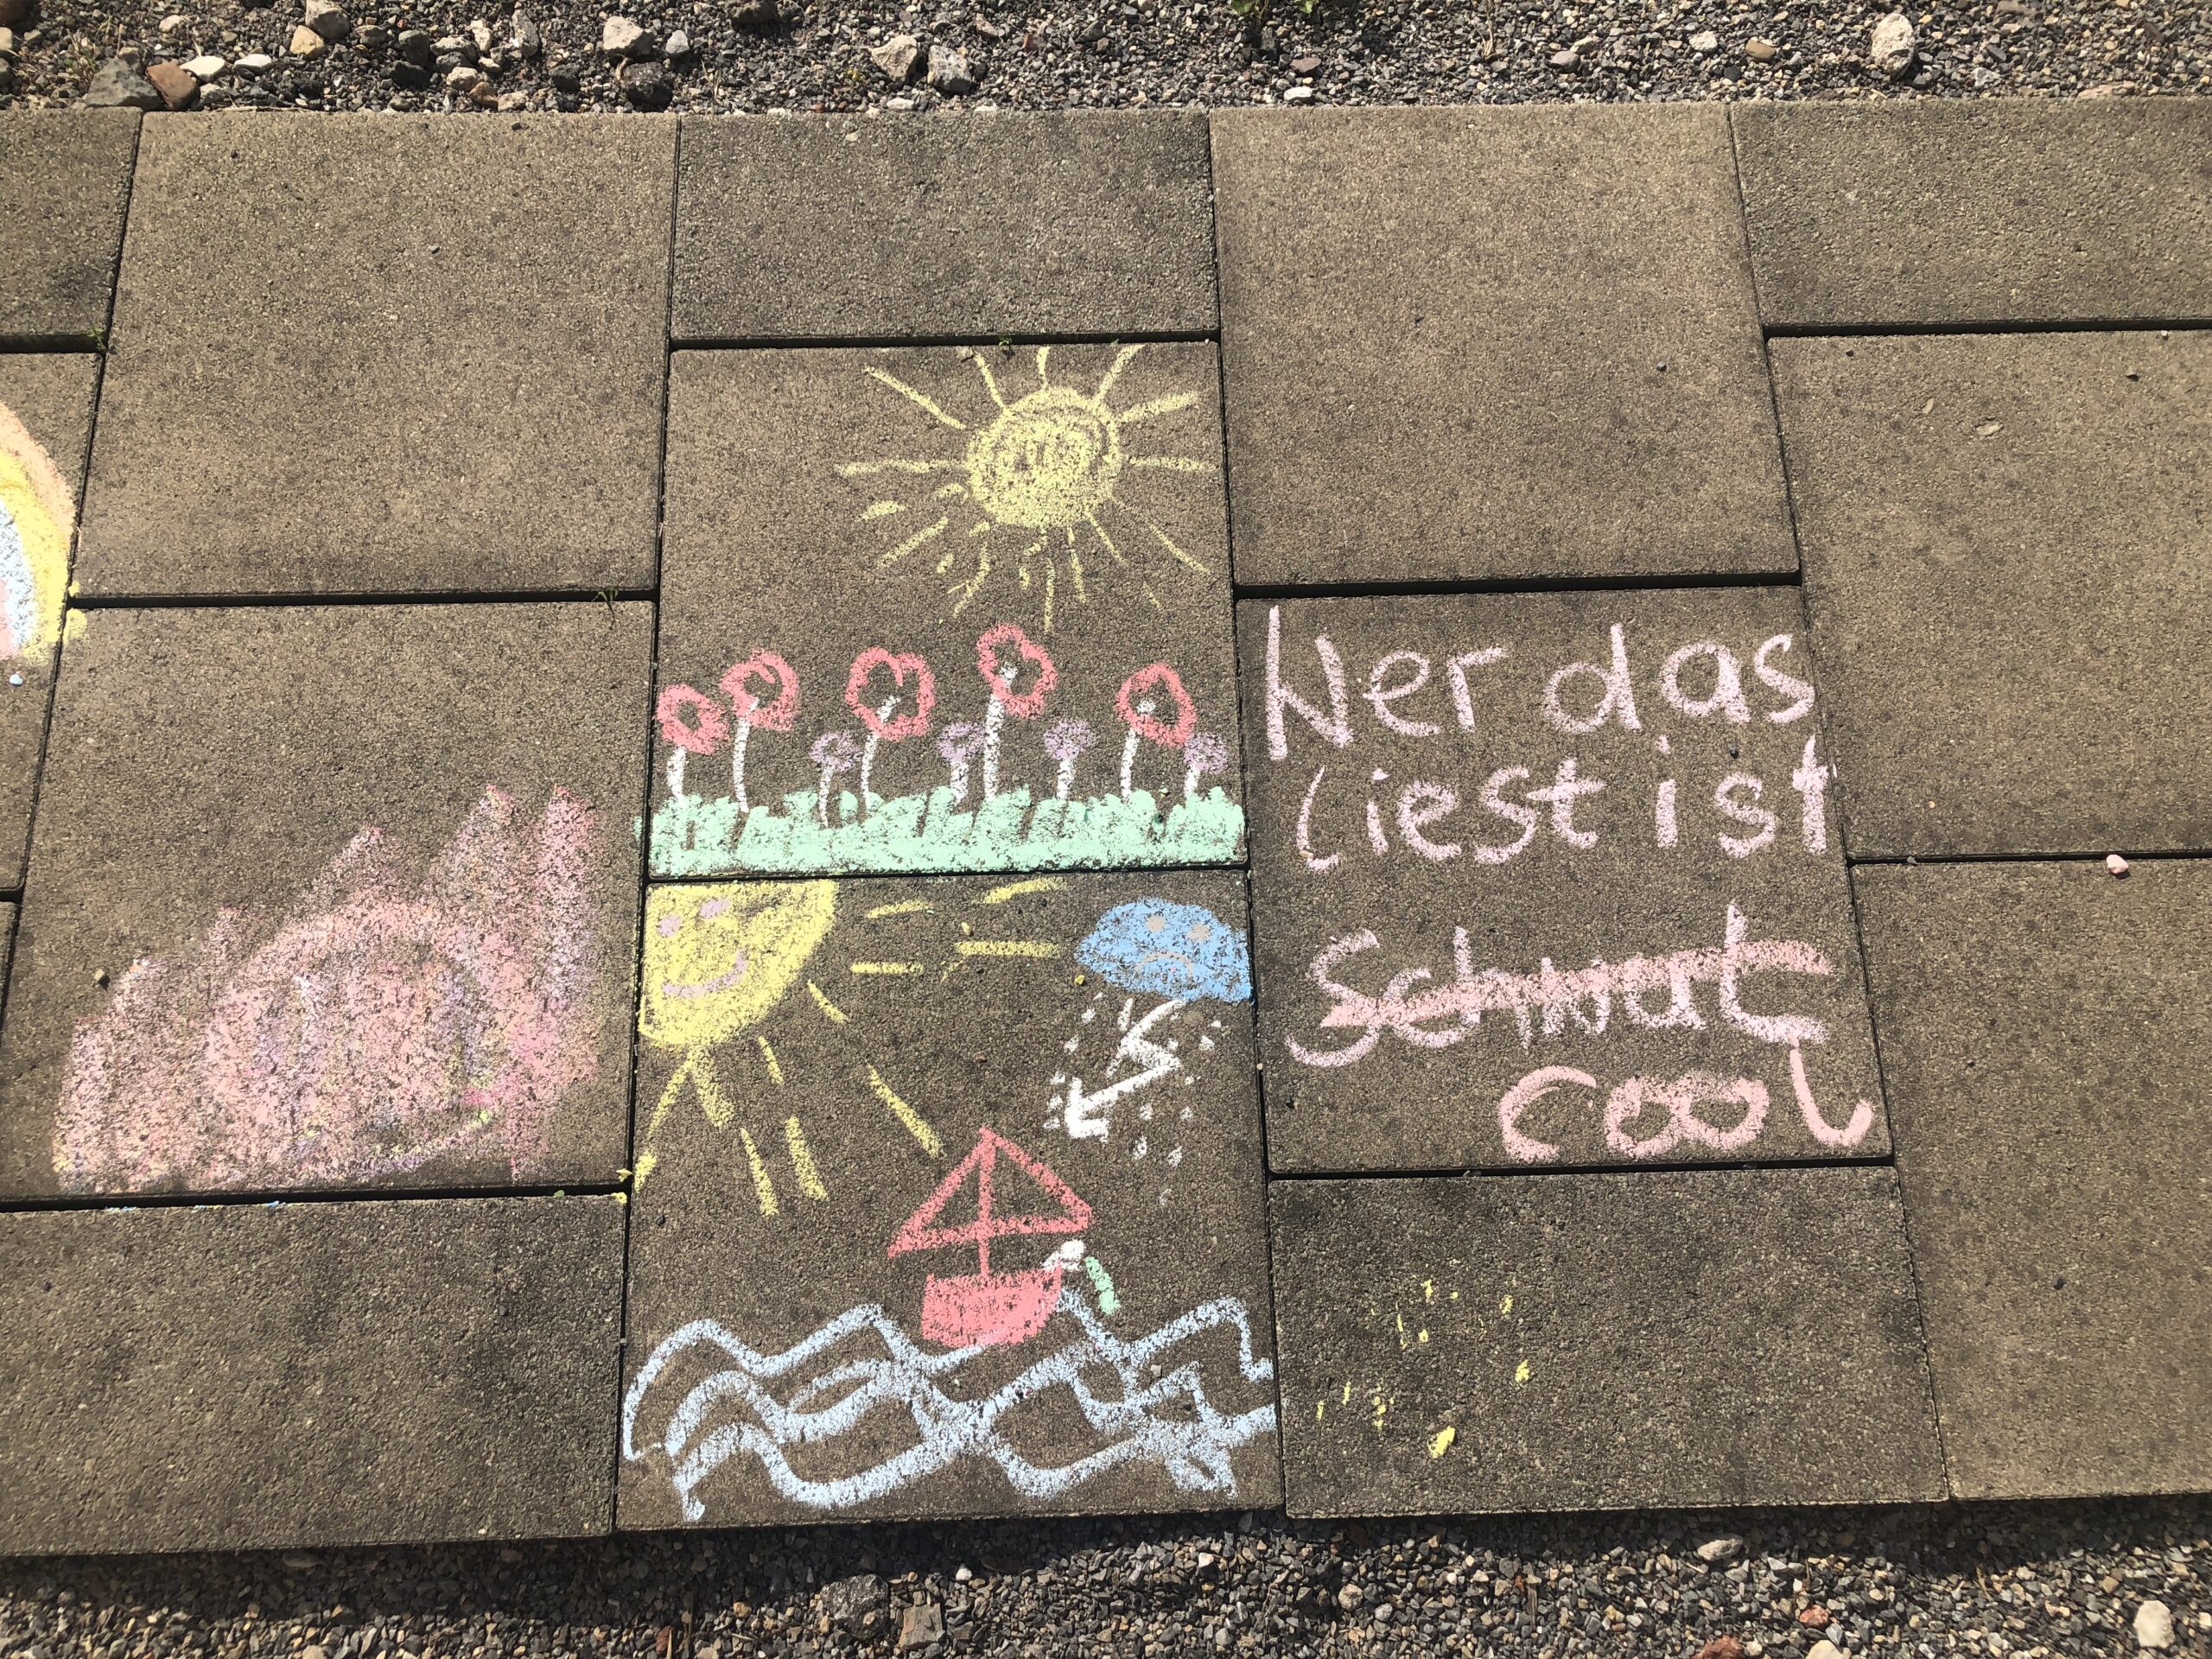 Wer das
liest ist
cool